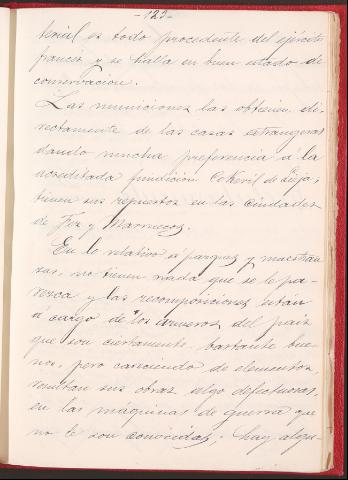 -123-
terial es todo procedente del ejército
francés y se halla en buen estado de
conservación.
Las municiones las obtienen di-
rectamente de las casas estrangeras
dando mucha preferencia á la
acreditada fundición Cokeril de Lieja,
tienen sus repuestos en las ciudades
de Fez y Marruecos.
En lo relativo á parques y maestran
zas, no tienen nada que se le pa-
rezca y las recomposiciones están
á cargo de los armeros del país
que son ciertamente bastante bue-
nos, pero careciendo de elementos,
resultan sus obras algo defectuosas,
en las máquinas de guerra que
no le son conocidas; hay algu-